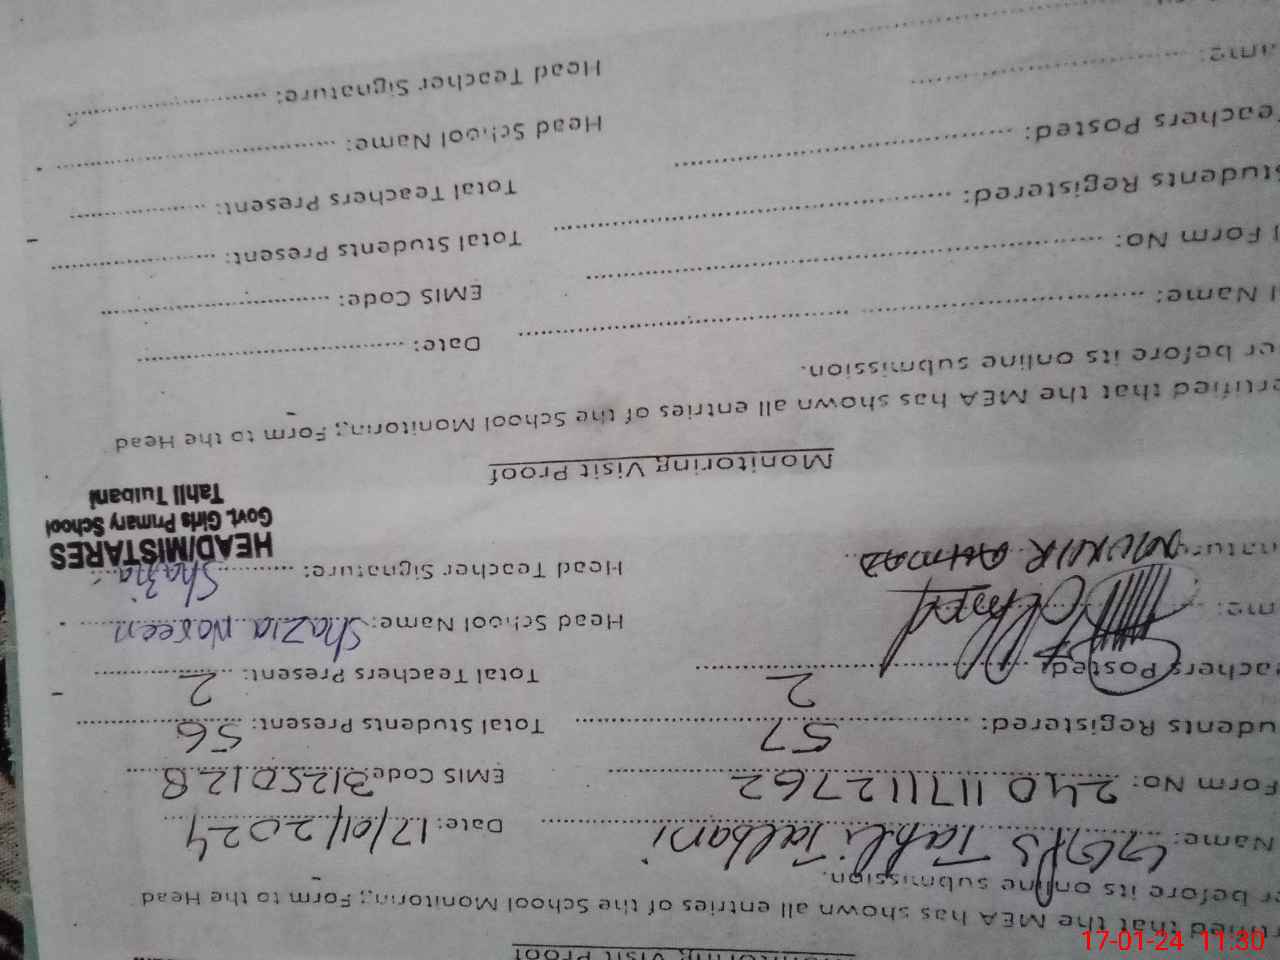 Monitoring Visit Proof
rtified that the MEA has shown all entries of the School Monitoring Form to the Head
er before its online submission.
Name: GGPS Tahli Talbani Date: 17/01/2024
Form No: 240117112762 EMIS Code 31250128
udents Registered: 57 Total Students Present: 56
achers Posted: 2 Total Teachers Present: 2
me: Head School Name: Shazia Noreen
nature MUNIR AHMAD Head Teacher Signature: Shazia
HEAD/MISTARES
Govt. Girls Primary School
Tahli Tulbani
Monitoring Visit Proof
ertified that the MEA has shown all entries of the School Monitoring Form to the Head
er before its online submission.
l Name: Date:
l Form No: EMIS Code:
tudents Registered: Total Students Present:
Teachers Posted: Total Teachers Present:
ame: Head School Name:
Head Teacher Signature:
17-01-24 11:30